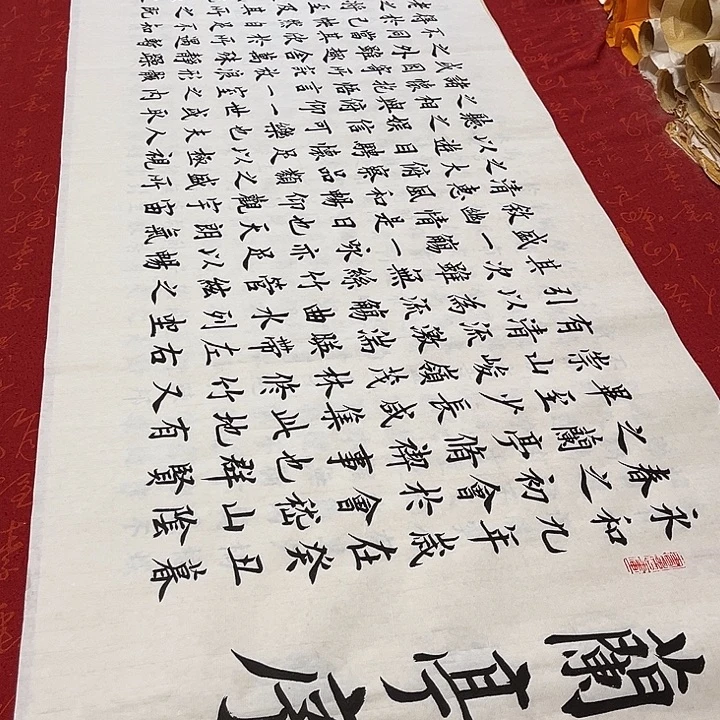 蘭亭序
永和九年歲在癸丑暮
春之初會於會嵇山陰
之蘭亭脩禊事也群賢
畢至少長咸集此地有
崇山峻嶺茂林修竹又
有清流激湍映帶左右
引以為流觴曲水列坐
其次雖無絲竹管絃之
盛一觴一詠亦足以暢
敘幽情是日也天朗氣
清惠風和暢仰觀宇宙
之大俯察品類之盛所
以遊目騁懷足以極視
聽之娛信可樂也夫人
之相與俯仰一世或取
諸懷抱悟言一室之內
或因寄所託放浪形骸
之外雖趣舍萬殊靜躁
不同當其欣於所遇暫